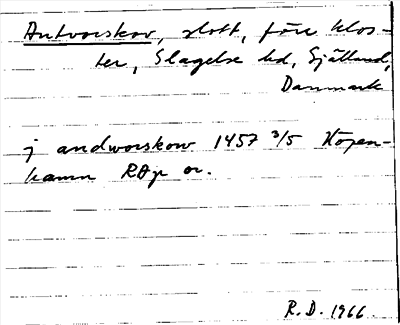 Antvorskov, slott, förr klos-
ter, Slagelse hd, Själland,
Danmark
j andworskow 1457 3/5 Köpen-
hamn RAp or.
R.D. 1966.